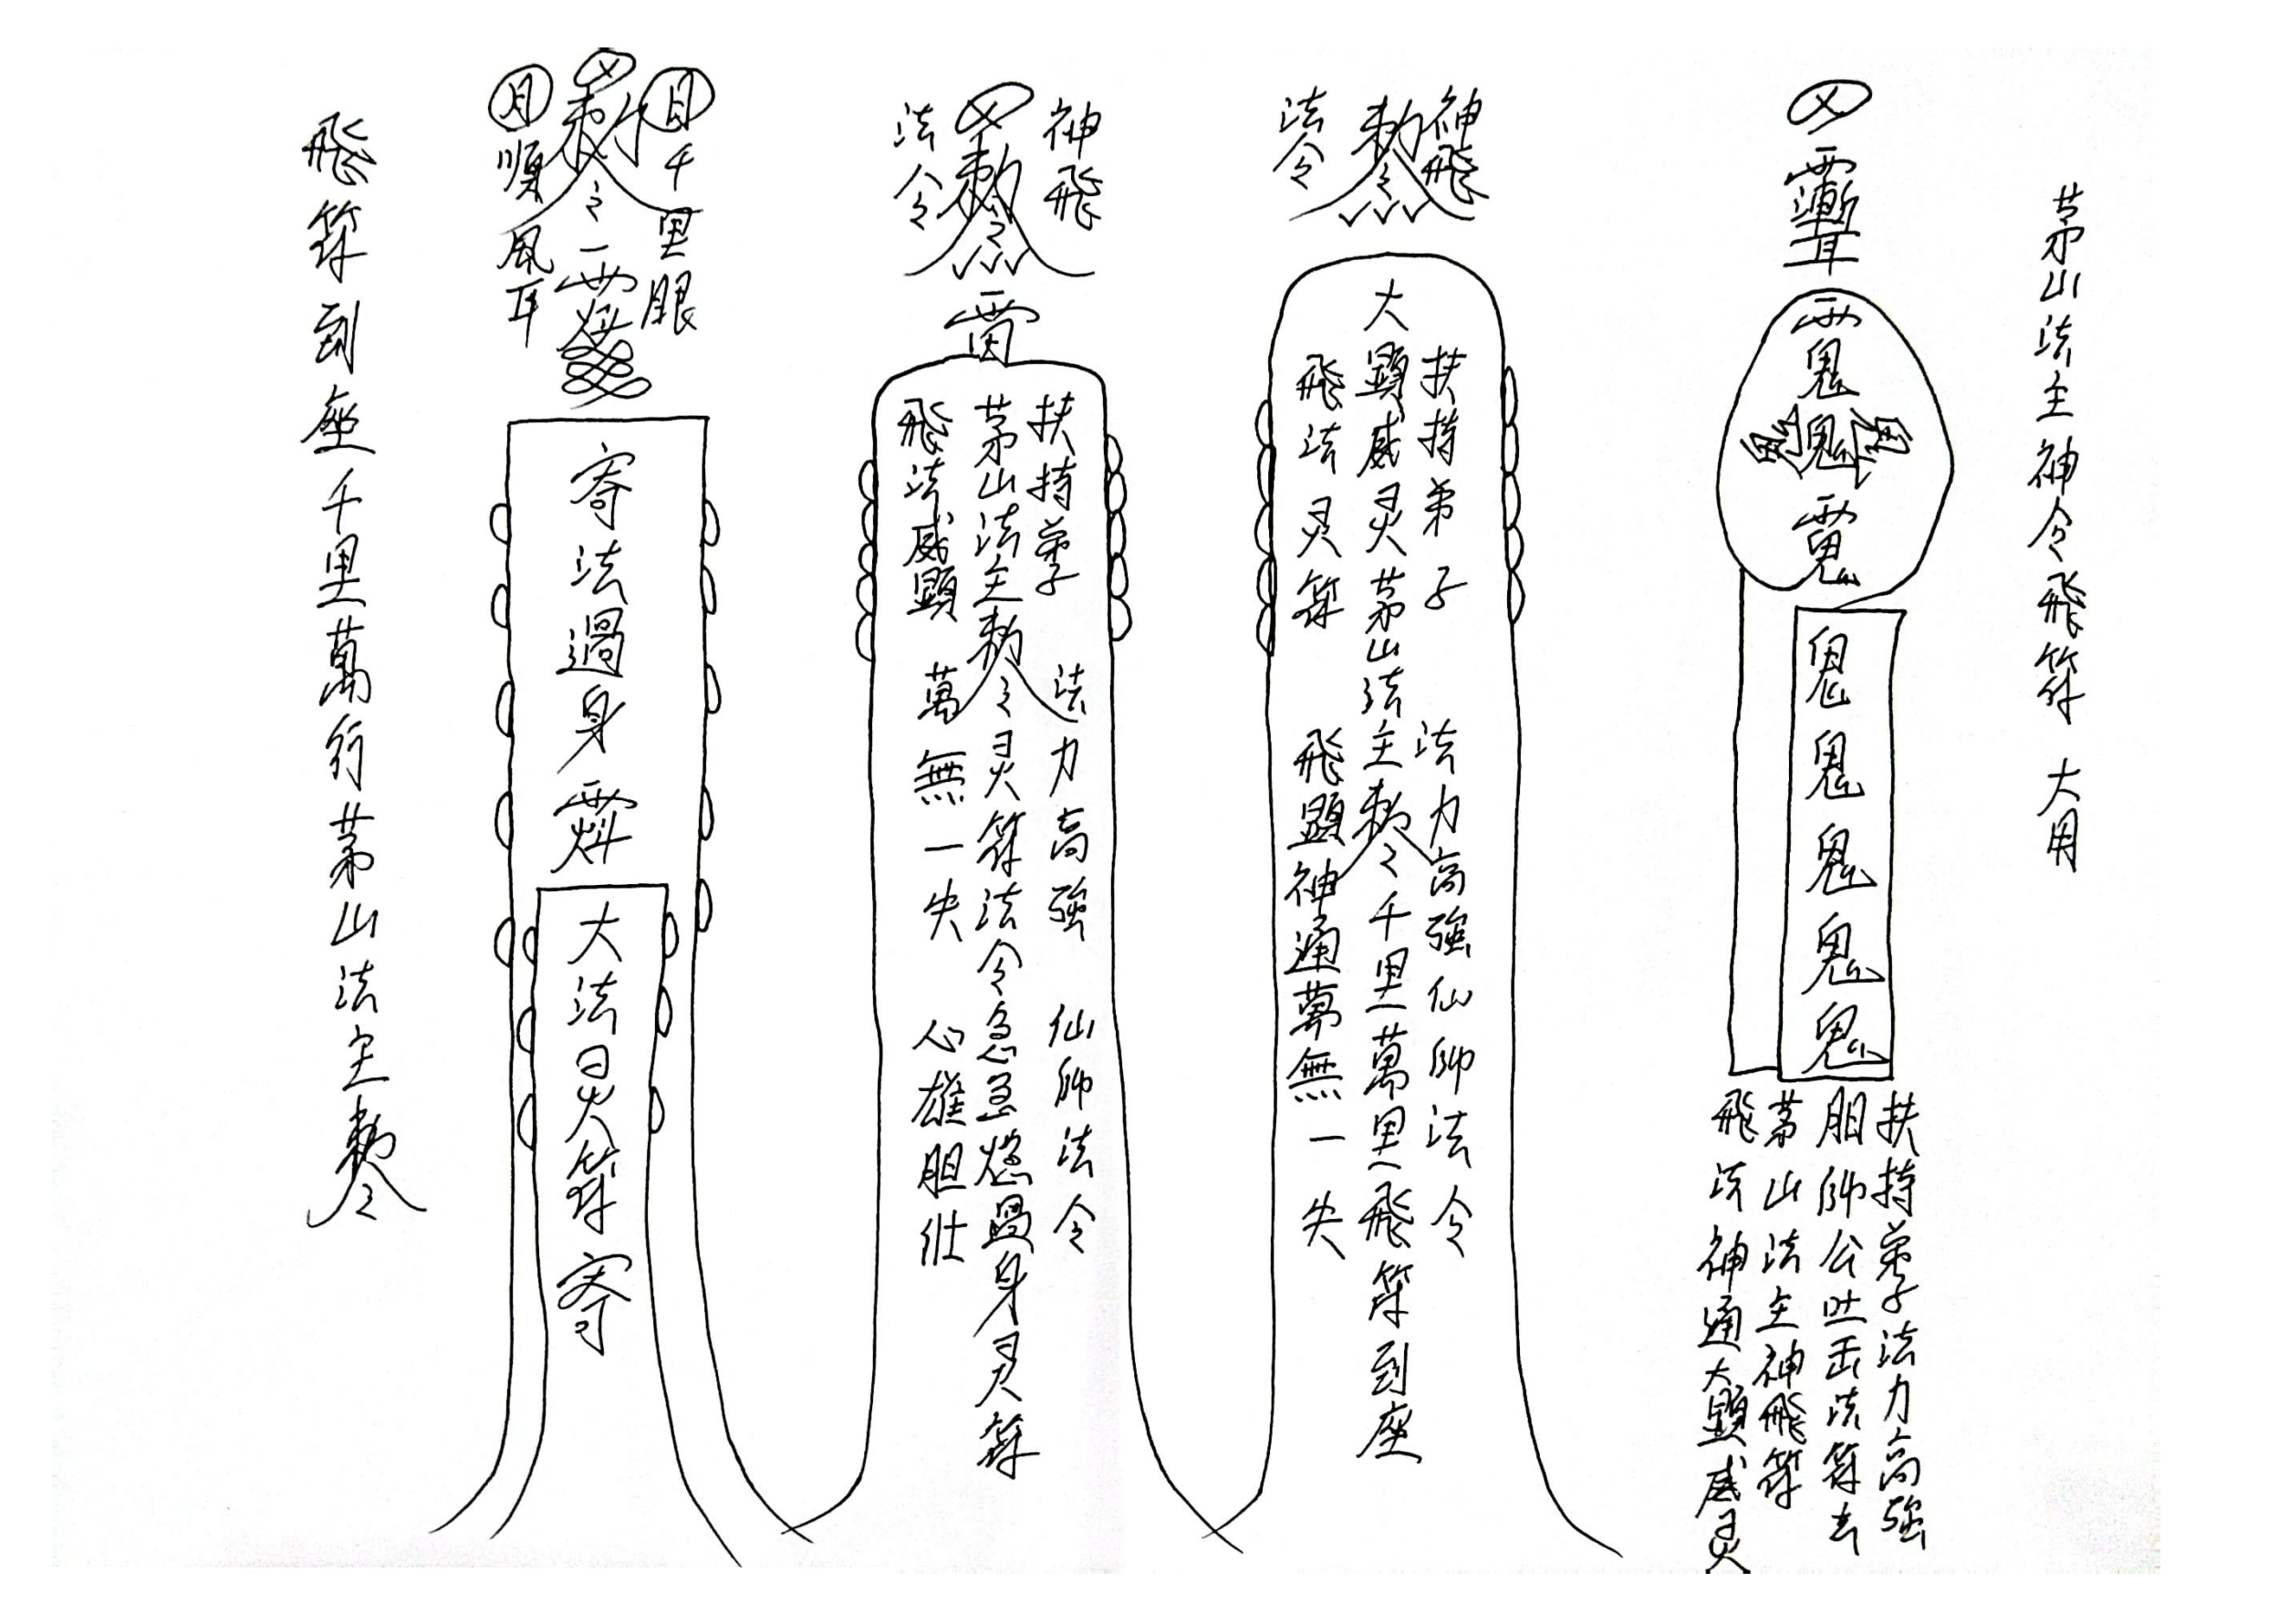 茅山法主神令飛符 大用
鬼
鬼
鬼
鬼
鬼
扶持弟子法力高強
胆師公吐击法符去
茅山法主神飛符
飛法神通大顕威灵
神飛
勅令
法令
扶持弟子 法力高強仙師法令
大顕威灵茅山法主勅令千里萬里飛符到座
飛法灵符 飛顕神通萬無一失
神飛
勅令
法令
雷
扶持弟子 法力高強 仙師法令
茅山法主勅令灵符法令急急過身灵符
飛法威顕 萬無一失 心雄胆壮
日千里眼
勅令
月順風耳
寄法過身
大法灵符寄
飛符到座千里萬行茅山法主勅令